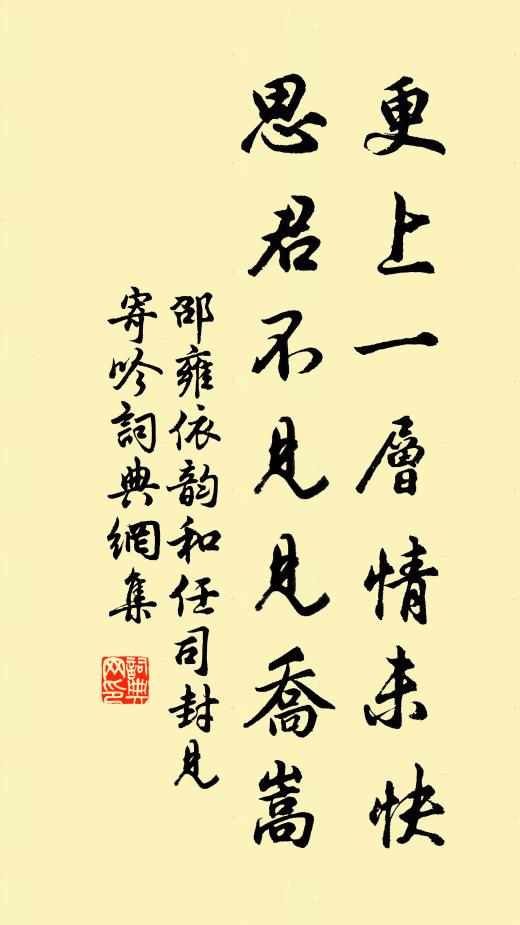 更上一層情未快
思君不見見喬嵩
邵雍依韵和任司封見
寄吟詞典網集
詞典
网印